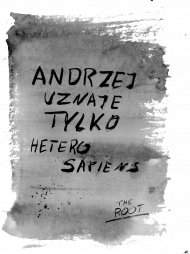 ANDRZEJ
UZNAJE
TYLKO
HETERO
SAPIENS
THE
ROOT